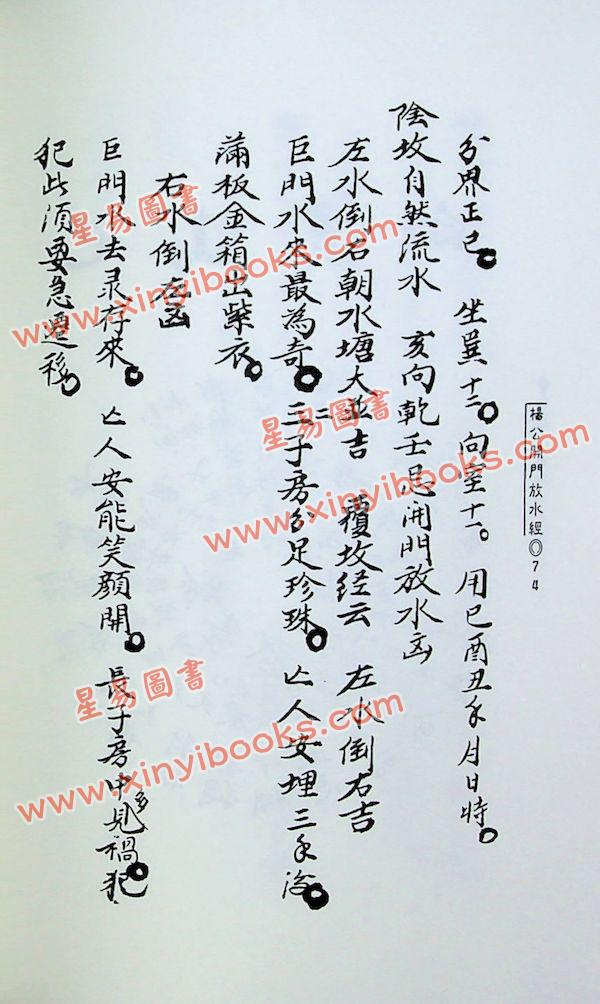 楊公開門放水經◎74
分界正己。 坐巽十二。向室十一。 用巳酉丑年月日時。
陰坟自然流水 亥向乾壬忌開門放水凶
左水倒右朝水塘大並吉 覆坟经云 左水倒右吉
巨門水來最為奇。 二三子房分足珍珠。 亡人安埋三年後。
滿板金箱出紫衣。
右水倒左凶
巨門水去录存來。 亡人安能笑顏開。 長子房中多見禍。犯
犯此須要急遷移。
星易圖書
www.xinyibooks.com
星易圖書
www.xinyibooks.com
星易圖書
www.xinyibooks.com